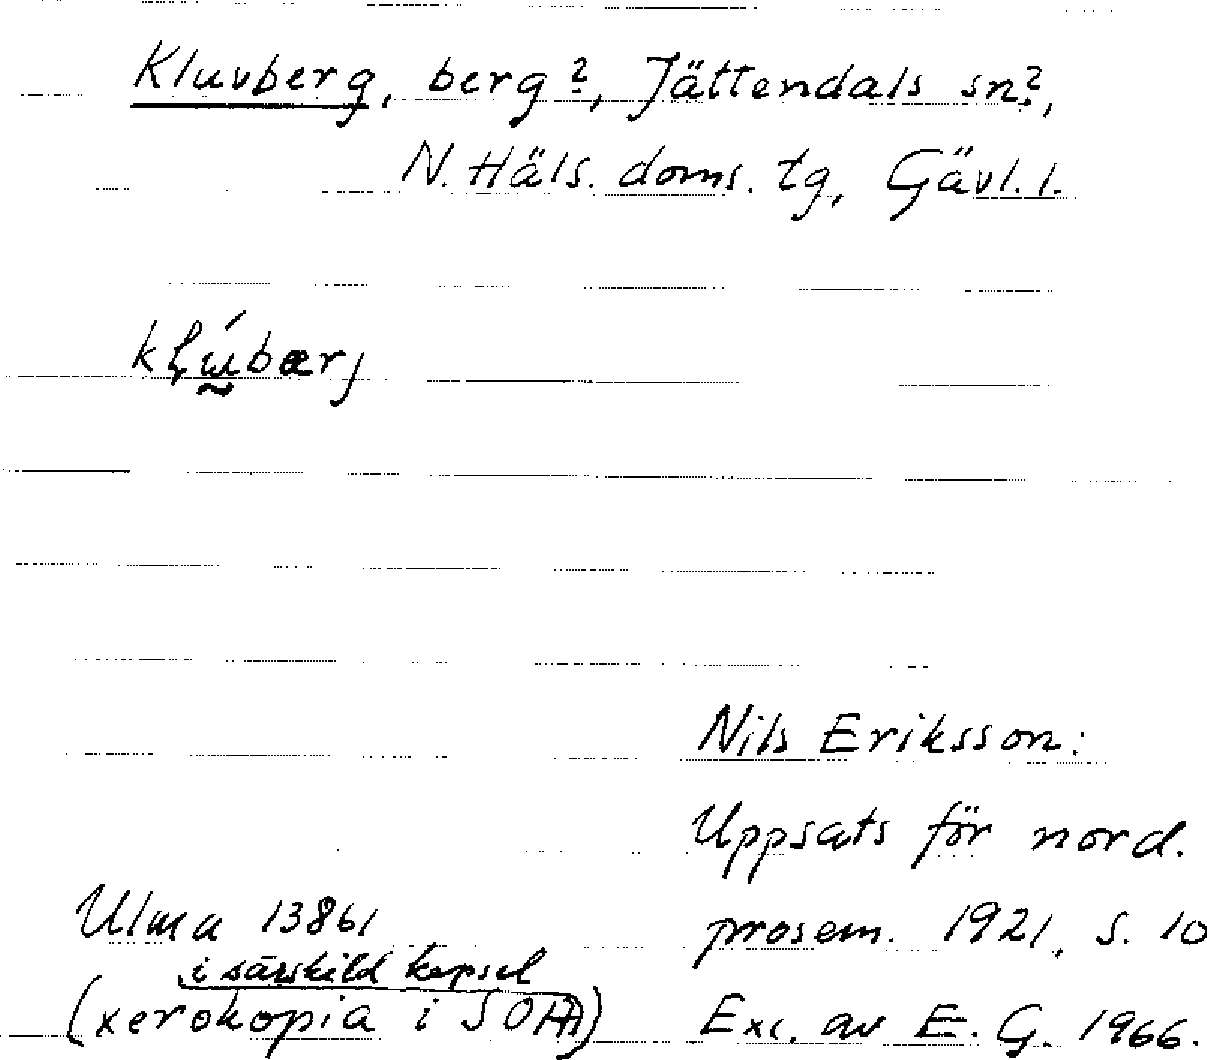 Kluvberg, berg?, Jättendals sn?,
N. Häls. doms. tg, Gävl. l.
Nils Eriksson:
Uppsats för nord.
prosem. 1921, s. 10
Exc. av E. G. 1966.
Ulma 13861
i särskild kapsel
(xerokopia i SOA)